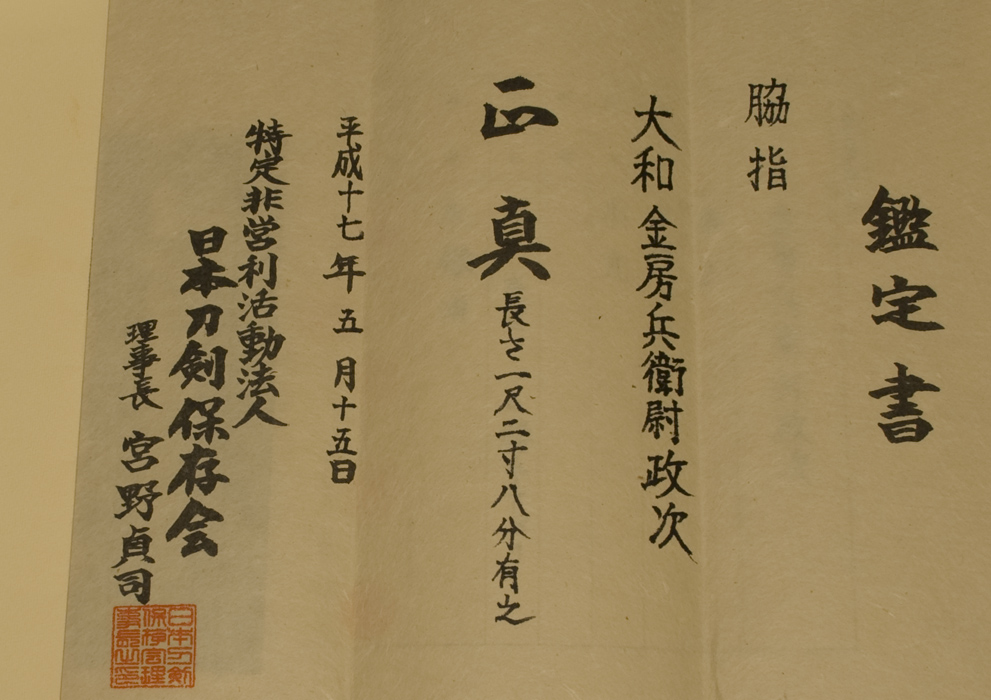 鑑定書
脇指
大和金房兵衛尉政次
正真
長さ一尺二寸八分有之
平成十七年五月十五日
特定非営利活動法人
日本刀剣保存会
理事長 宮野貞司
日本刀剣
保存会理
事長之印